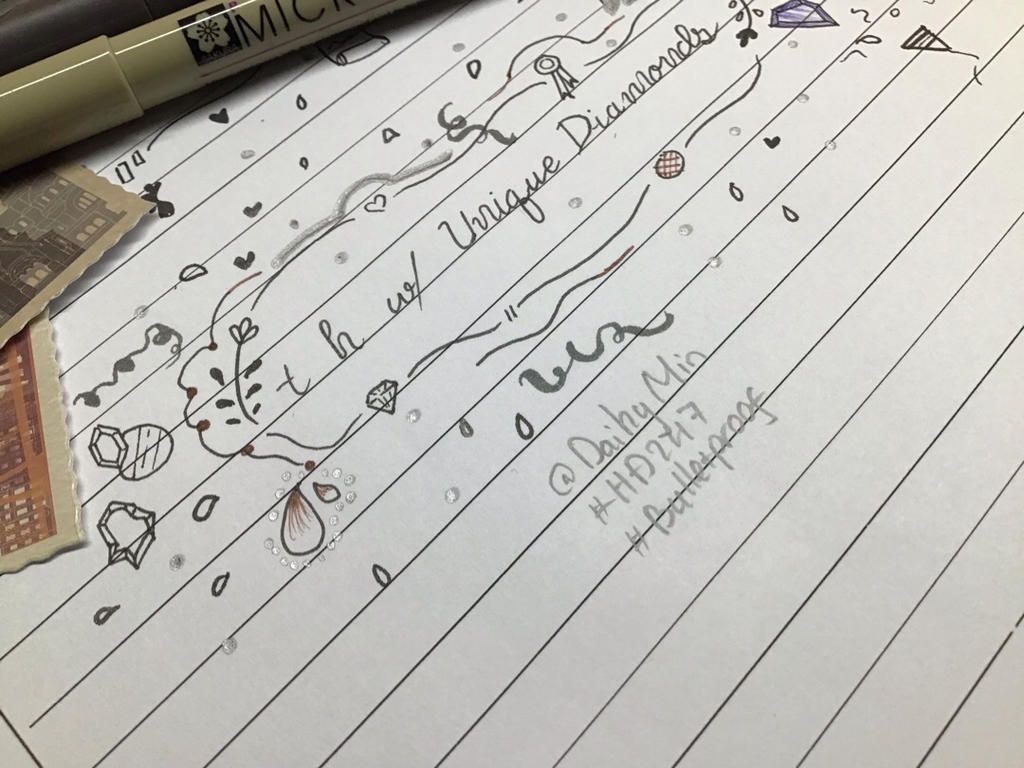 MICR
t h w/ Unique Diamonds
@Daihy Min
#HD2417
#Bulletproof